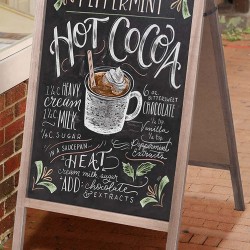 PEPPERMINT
HOT COCOA
1 1/2 C. HEAVY
cream
1 1/2 C. MILK
1/4 C. SUGAR
6 oz
BITTERSWEET
CHOCOLATE
Vanilla
Peppermint
Extracts
IN A SAUCEPAN...
HEAT
cream milk sugar
ADD: chocolate
& EXTRACTS